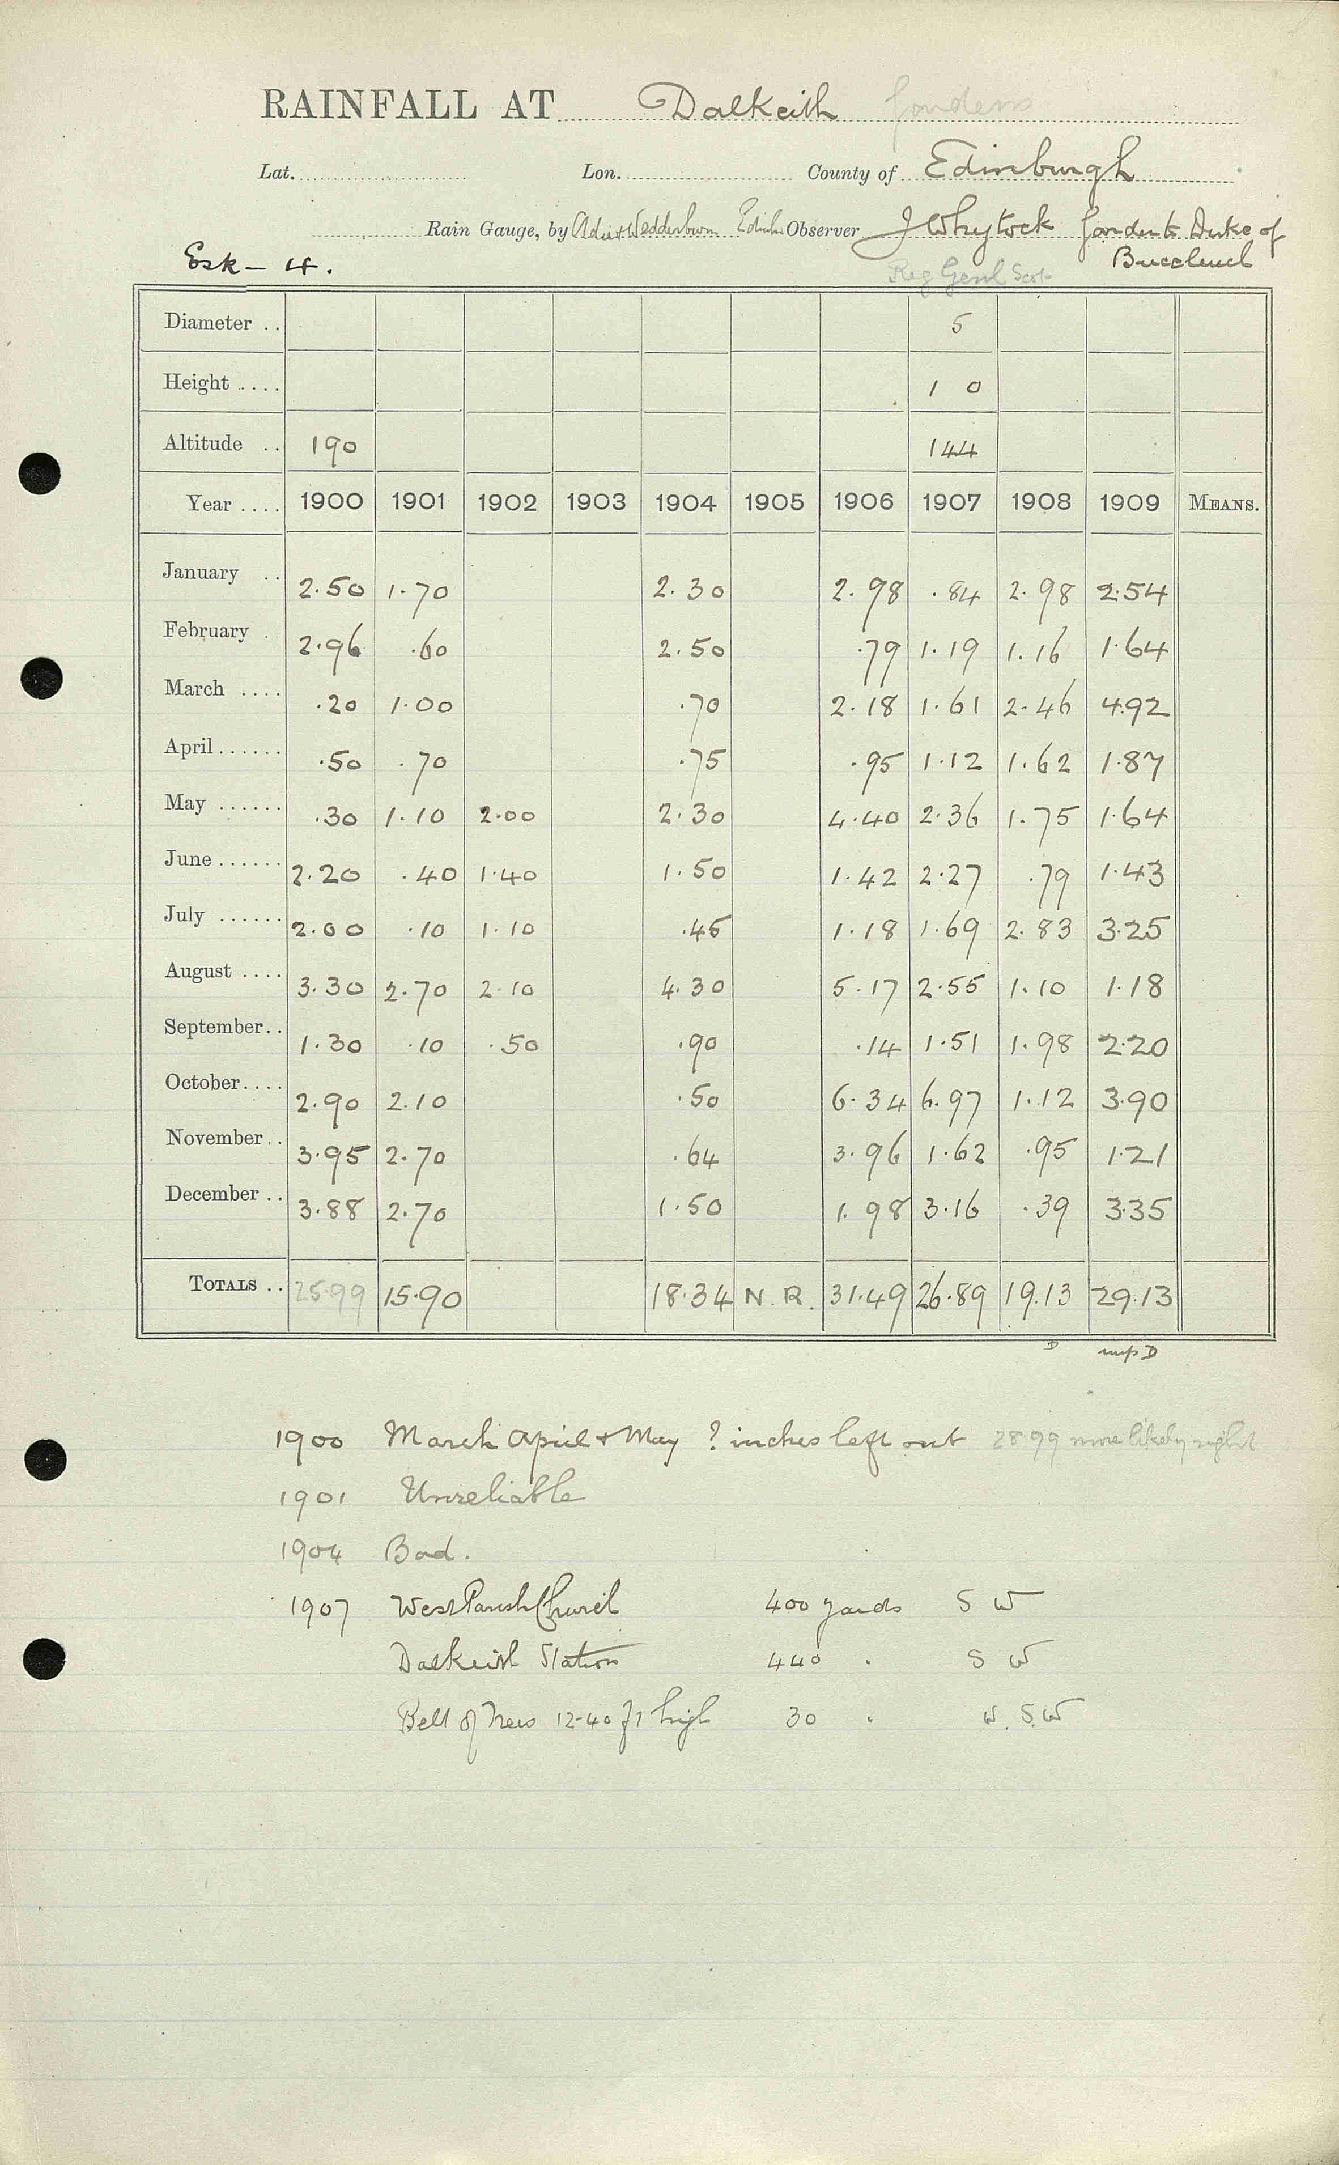 RAINFALL AT Dalkeith Gardens
Lat. Lon. County of Edinburgh
Rain Gauge, by Adie & Wedderburn Edinb Observer J Whytock Gardr to Duke of
Esk - 4. Reg Genl Scot Buccleuch
Diameter .. 5
Height .... 1 0
Altitude .. 190 144
Year .... 1900 1901 1902 1903 1904 1905 1906 1907 1908 1909 MEANS.
January .. 2.50 1.70 2.30 2.98 .84 2.98 2.54
February . 2.96 .60 2.50 .79 1.19 1.16 1.64
March .... .20 1.00 .70 2.18 1.61 2.46 4.92
April ...... .50 .70 .75 .95 1.12 1.62 1.87
May ...... .30 1.10 2.00 2.30 4.40 2.36 1.75 1.64
June ...... 2.20 .40 1.40 1.50 1.42 2.27 .79 1.43
July ...... 2.00 .10 1.10 .45 1.18 1.69 2.83 3.25
August .... 3.30 2.70 2.10 4.30 5.17 2.55 1.10 1.18
September.. 1.30 .10 .50 .90 .14 1.51 1.98 2.20
October.... 2.90 2.10 .50 6.34 6.97 1.12 3.90
November.. 3.95 2.70 .64 3.96 1.62 .95 1.21
December .. 3.88 2.70 1.50 1.98 3.16 .39 3.35
TOTALS .. 25.99 15.90 18.34 N.R. 31.49 26.89 19.13 29.13
D D
1900 March April & May ? inches left out 28.99 more likely right
1901 Unreliable
1904 Bad.
1907 West Parish Church 400 yards S W
Dalkeith Station 440 " S W
Belt of Trees 12-40 ft high 30 " W.S.W